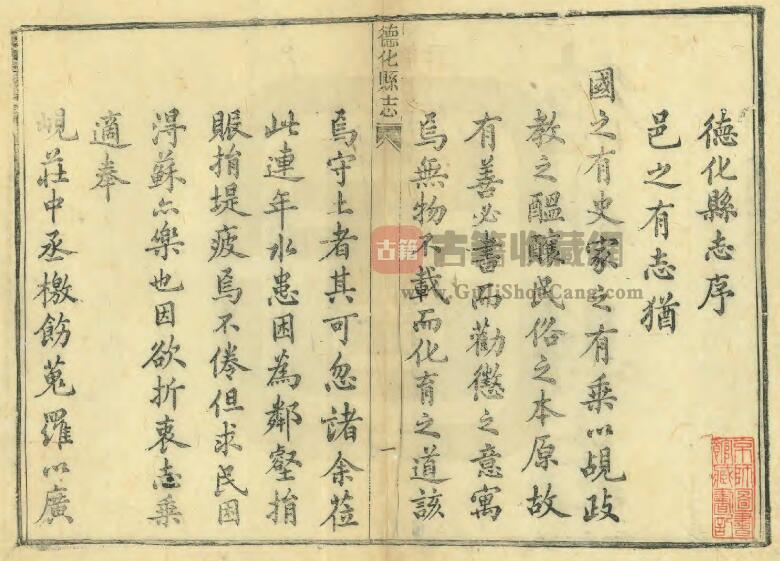 德化縣志序
邑之有志猶
國之有史家之有乘以覘政
教之醞釀民俗之本原故
有善必書而勸懲之意寓
焉無物不載而化育之道該
德化縣志
一
焉守土者其可忽諸余莅
此連年水患因為鄰壑捐
賑捐堤疲焉不倦但求民困
淂蘇亦樂也因欲折衷志乘
適奉
峴莊中丞檄飭蒐羅以廣
京師圖書館藏書記
古籍 古籍收藏網
www.GuJiShouCang.com